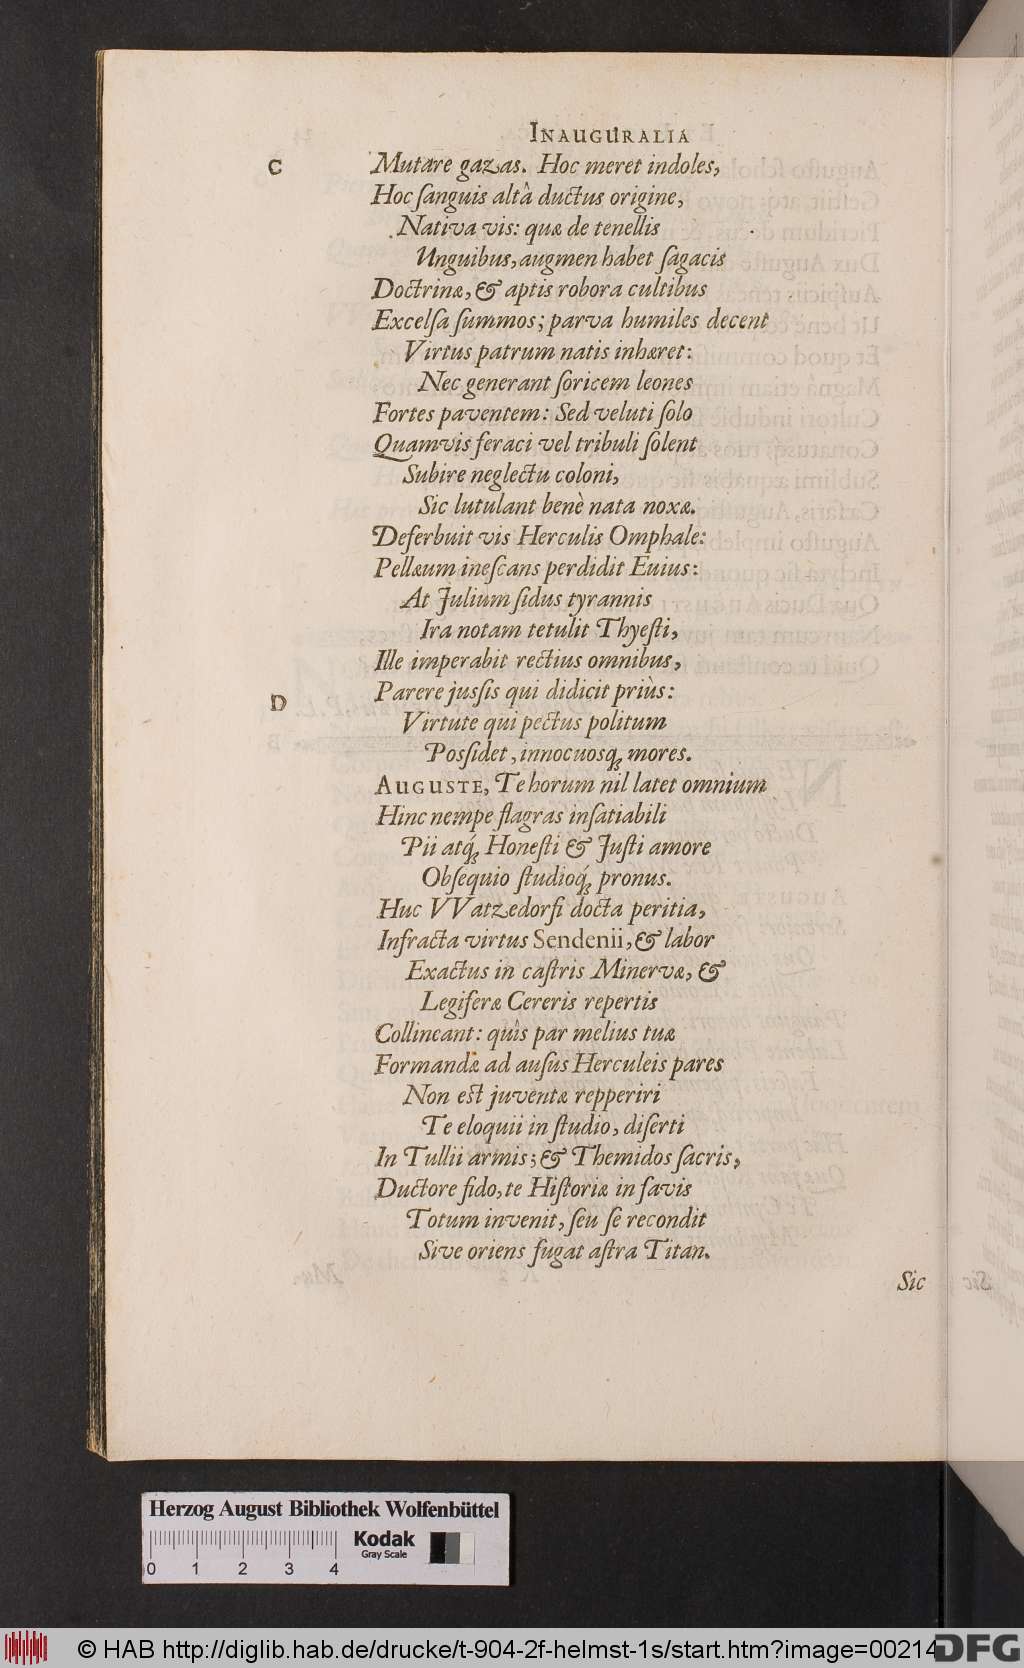 INAUGURALIA
C
Mutare gazas. Hoc meret indoles,
Hoc ſanguis altâ ductus origine,
Nativa vis: quæ de tenellis
Unguibus, augmen habet ſagacis
Doctrinæ, & aptis robora cultibus
Excelſa ſummos; parva humiles decent
Virtus patrum natis inhæret:
Nec generant ſoricem leones
Fortes paventem: Sed veluti ſolo
Quamvis feraci vel tribuli ſolent
Subire neglectu coloni,
Sic lutulant benè nata noxæ.
Deferbuit vis Herculis Omphale:
Pellæum ineſcans perdidit Euius:
At Julium ſidus tyrannis
Ira notam tetulit Thyeſti,
Ille imperabit rectius omnibus,
D
Parere juſsis qui didicit priùs:
Virtute qui pectus politum
Poſſidet, innocuosq; mores.
AUGUSTE, Te horum nil latet omnium
Hinc nempe flagras inſatiabili
Pii atq́; Honeſti & Juſti amore
Obſequio ſtudioq́; pronus.
Huc VVatzedorfi docta peritia,
Infracta virtus Sendenii, & labor
Exactus in caſtris Minervæ, &
Legiferæ Cereris repertis
Collineant: quîs par melius tuæ
Formandæ ad auſus Herculeis pares
Non est juventæ repperiri
Te eloquii in ſtudio, diſerti
In Tullii armis; & Themidos ſacris,
Ductore fido, te Hiſtoriæ in favis
Totum invenit, ſeu ſe recondit
Sive oriens fugat aſtra Titan.
Sic
Herzog August Bibliothek Wolfenbüttel
Kodak
Gray Scale
0 1 2 3 4
© HAB http://diglib.hab.de/drucke/t-904-2f-helmst-1s/start.htm?image=00214
DFG